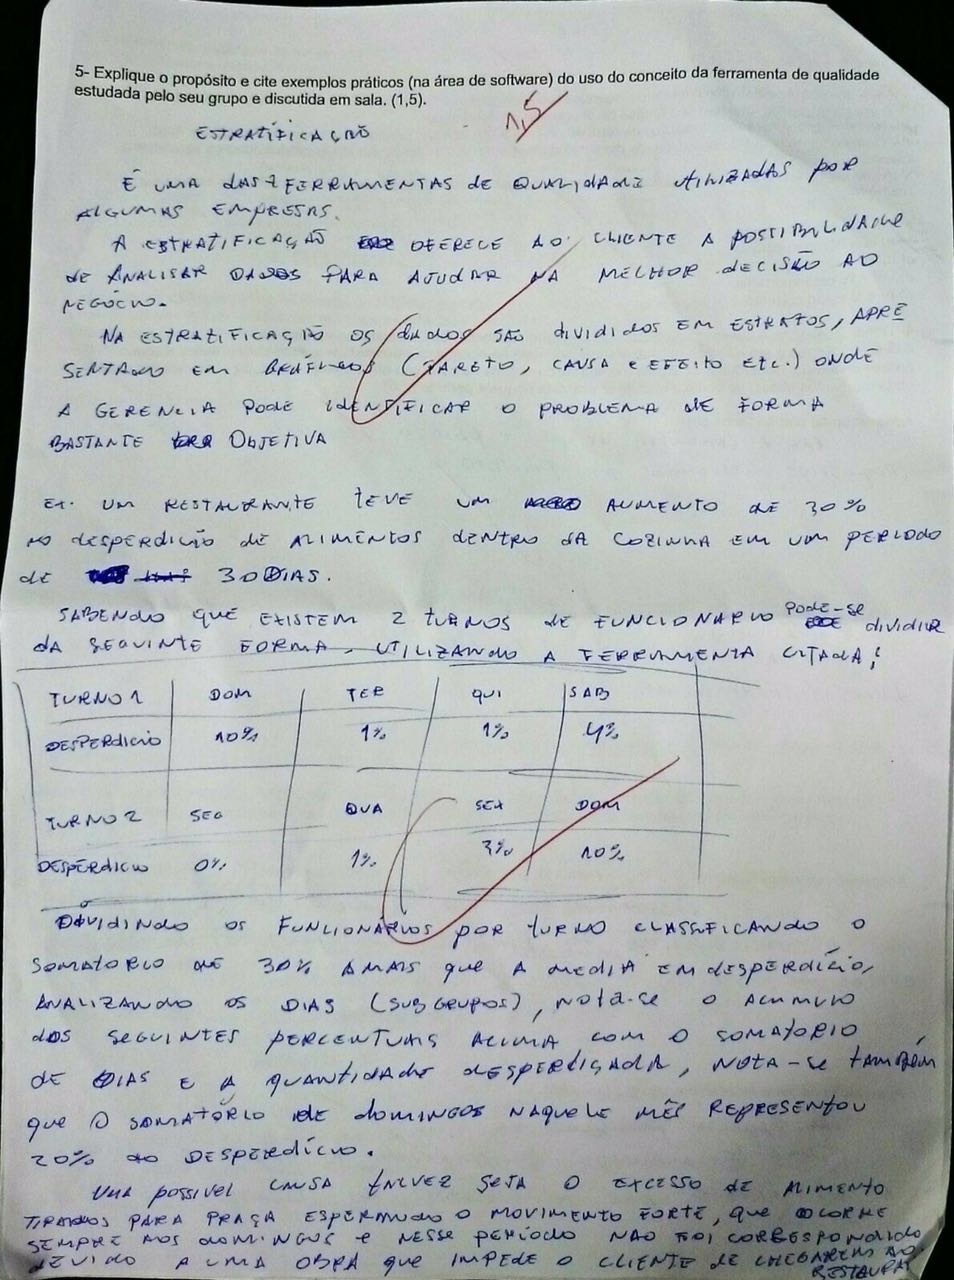 5- Explique o propósito e cite exemplos práticos (na área de software) do uso do conceito da ferramenta de qualidade
estudada pelo seu grupo e discutida em sala. (1,5).
1,5
ESTRATIFICAÇÃO
É UMA DAS 7 FERRAMENTAS DE QUALIDADE UTILIZADAS POR
ALGUMAS EMPRESAS.
A ESTRATIFICAÇÃO OFERECE AO CLIENTE A POSSIBILIDADE
DE ANALISAR DADOS PARA AJUDAR NA MELHOR DECISÃO AO
NEGÓCIO.
NA ESTRATIFICAÇÃO OS DADOS SÃO DIVIDIDOS EM ESTRATOS, APRE
SENTADO EM GRÁFICOS (PARETO, CAUSA E EFEITO ETC.) ONDE
A GERENCIA PODE IDENTIFICAR O PROBLEMA DE FORMA
BASTANTE OBJETIVA
EX. UM RESTAURANTE TEVE UM AUMENTO DE 30%
NO DESPERDICIO DE ALIMENTOS DENTRO DA COZINHA EM UM PERIODO
DE 30 DIAS.
SABENDO QUE EXISTEM 2 TURNOS DE FUNCIONARIO PODE-SE DIVIDIR
DA SEGUINTE FORMA, UTILIZANDO A FERRAMENTA CITADA;
TURNO 1 DOM TER QUI SAB
DESPERDICIO 10% 1% 1% 4%
TURNO 2 SEG QUA SEX DOM
DESPERDICIO 0% 1% 3% 10%
DIVIDINDO OS FUNCIONÁRIOS POR TURNO CLASSIFICANDO O
SOMATORIO DE 30% A MAIS QUE A MEDIA EM DESPERDÍCIO,
ANALIZANDO OS DIAS (SUBGRUPOS), NOTA-SE O ACUMULO
DOS SEGUINTES PERCENTUAIS ACIMA COM O SOMATORIO
DE DIAS E A QUANTIDADE DESPERDIÇADA, NOTA-SE TAMBÉM
QUE O SOMATÓRIO DE DOMINGOS NAQUELE MÊS REPRESENTOU
20% DO DESPERDÍCIO.
UMA POSSIVEL CAUSA TALVEZ SEJA O EXCESSO DE ALIMENTO
TIRADOS PARA PRAÇA ESPERANDO O MOVIMENTO FORTE, QUE OCORRE
SEMPRE AOS DOMINGOS E NESSE PERÍODO NÃO FOI CORRESPONDIDO
DEVIDO A UMA OBRA QUE IMPEDE O CLIENTE DE CHEGAREM AO